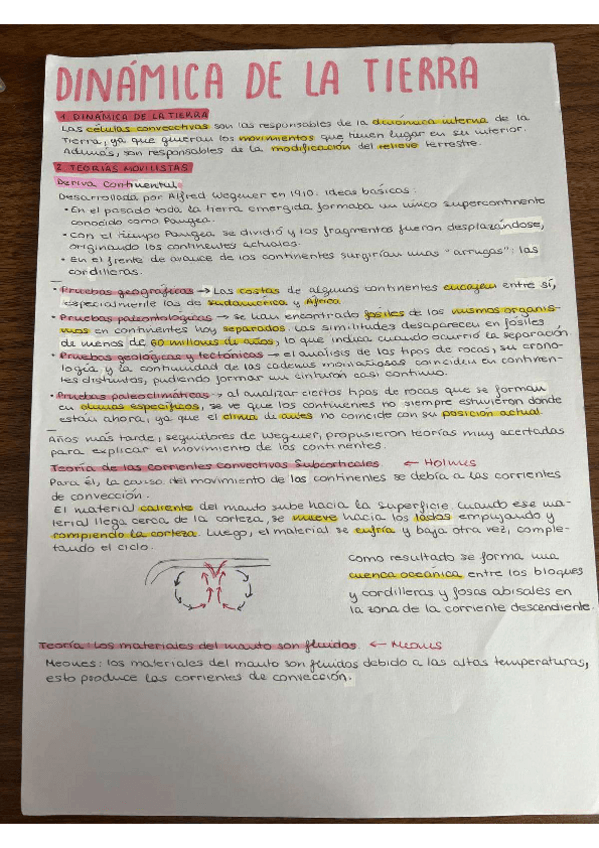 DINÁMICA DE LA TIERRA
1. DINÁMICA DE LA TIERRA
Las células convectivas son las responsables de la dinámica interna de la
Tierra, ya que generan los movimientos que tienen lugar en su interior.
Además, son responsables de la modificación del relieve terrestre.
2. TEORÍAS MOVILISTAS
Deriva Continental.
Desarrollada por Alfred Wegener en 1910. Ideas básicas:
• En el pasado toda la tierra emergida formaba un único supercontinente
conocido como Pangea.
• Con el tiempo Pangea se dividió y los fragmentos fueron desplazándose,
originando los continentes actuales.
• En el frente de avance de los continentes surgirían unas "arrugas": las
cordilleras.
• Pruebas geográficas → Las costas de algunos continentes encajan entre sí,
especialmente las de Sudamérica y África.
• Pruebas paleontológicas → se han encontrado fósiles de los mismos organis-
mos en continentes hoy separados. Las similitudes desaparecen en fósiles
de menos de 60 millones de años, lo que indica cuando ocurrió la separación.
• Pruebas geológicas y tectónicas → el análisis de los tipos de rocas, su crono-
logía y la continuidad de las cadenas montañosas coinciden en continen-
tes distintos, pudiendo formar un cinturón casi continuo.
• Pruebas paleoclimáticas → al analizar ciertos tipos de rocas que se forman
en climas específicos, se ve que los continentes no siempre estuvieron donde
están ahora, ya que el clima de antes no coincide con su posición actual.
Años más tarde, seguidores de Wegener, propusieron teorías muy acertadas
para explicar el movimiento de los continentes.
Teoría de las Corrientes Convectivas Subcorticales. ← Holmes
Para él, la causa del movimiento de los continentes se debía a las corrientes
de convección.
El material caliente del manto sube hacia la superficie. Cuando ese ma-
terial llega cerca de la corteza, se mueve hacia los lados empujando y
rompiendo la corteza. Luego, el material se enfría y baja otra vez, comple-
tando el ciclo.
Como resultado se forma una
cuenca oceánica entre los bloques
y cordilleras y fosas abisales en
la zona de la corriente descendiente.
Teoría: Los materiales del manto son fluidos. ← Meones
Meones: los materiales del manto son fluidos debido a las altas temperaturas,
esto produce las corrientes de convección.